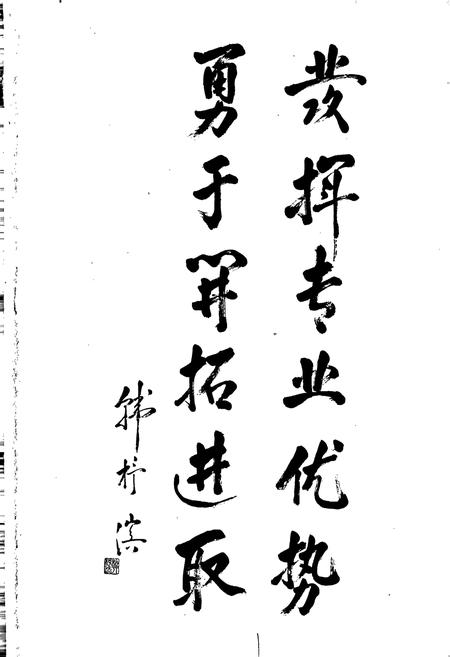 发挥专业优势
勇于开拓进取
韩杼滨